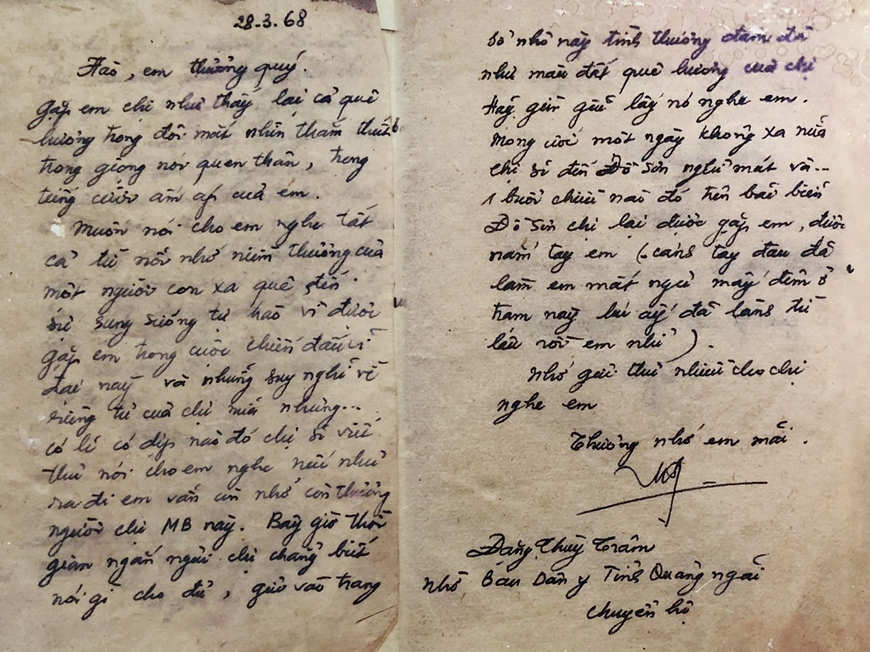 28-3.68
Hào, em thương quý.
Gặp em chị như thấy lại cả quê
hương trong đôi mắt nhìn thắm thiết
trong giọng nói quen thân, trong
từng cười ấm áp của em.
Muốn nói cho em nghe tất
cả từ nỗi nhớ niềm thương của
một người con xa quê đến
sự sung sướng tự hào vì được
gặp em trong cuộc chiến đấu vĩ
đại này và những suy nghĩ về
riêng tư của chị nữa nhưng...
có lẽ có dịp nào đó chị sẽ viết
thư nói cho em nghe nếu như
ra đi em vẫn còn nhớ còn thương
người chị MB này. Bây giờ thời
gian ngắn ngủi chị chẳng biết
nói gì cho đủ, gửi vào trang
sổ nhỏ này tình thương đậm đà
như màu đất quê hương của chị
Hãy gìn giữ lấy nó nghe em.
Mong ước một ngày không xa nữa
chị sẽ đến Đồ Sơn nghỉ mát và...
1 buổi chiều nào đó trên bãi biển
Đồ Sơn chị lại được gặp em, được
nắm tay em (cánh tay đau đã
làm em mất ngủ mấy đêm ở
trạm này lúc ấy đã lành từ
lâu rồi em nhỉ).
Nhớ gửi thư nhiều cho chị
nghe em
Thương nhớ em mãi.
Đặng Thuỳ Trâm
Nhờ Bán Dân y Tỉnh Quảng ngãi
chuyển hộ